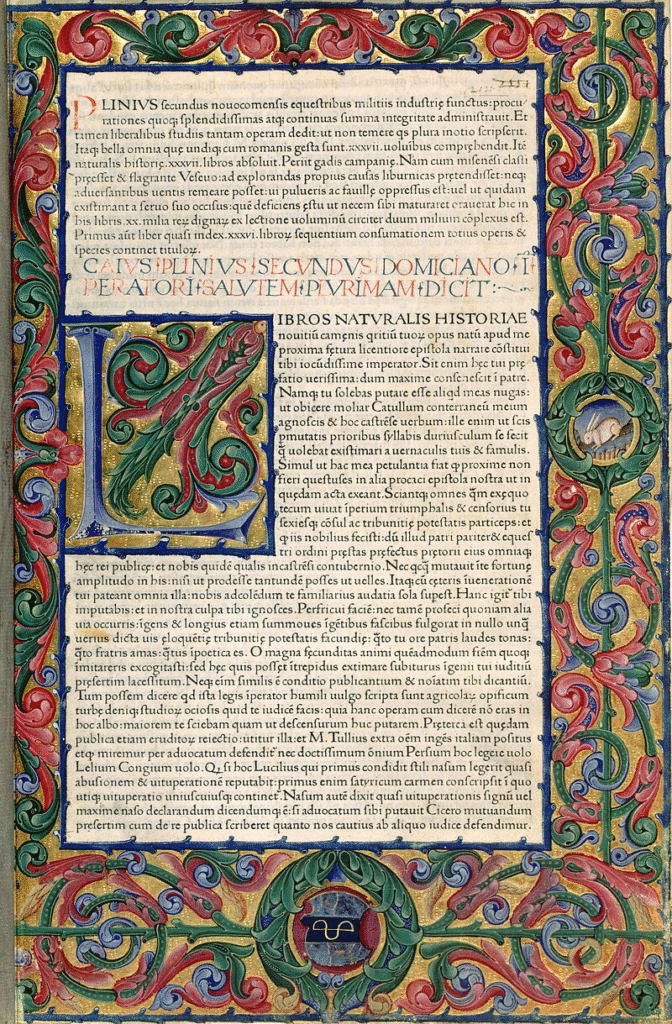 PLINIVS secundus nouocomensis equestribus militiis industrię functus: procu
rationes quoqȝ splendidissimas atqȝ continuas summa integritate administrauit. Et
tamen liberalibus studiis tantam operam dedit: ut non temere qs plura in otio scripserit.
Itaqȝ bella omnia quę undiqȝ cum romanis gesta sunt .xxxvii. uoluībus comprehendit. Itē
naturalis historię .xxxvii. libros absoluit. Periit gadis campanię. Nam cum misenēsi classi
pręesset & flagrante Veseuo: ad explorandas propius causas liburnicas prętendisset: neqȝ
aduersantibus uentis remeare posset: ui pulueris ac fauillę oppressus est: uel ut quidam
existimant a seruo suo occisus: quē deficiens ęstu ut necem sibi maturaret orauerat hic in
bis libris .xx. milia reꝝ dignaꝝ ex lectione uoluminū circiter duum milium cōplexus est.
Primus aūt liber quasi index .xxxvi. libroꝝ sequentium consumationem totius operis &
species continet tituloꝝ.
CAIVS PLINIVS SECVNDVS DOMICIANO I
PERATORI SALVTEM PLVRIMAM DICIT
LIBROS NATVRALIS HISTORIAE
nouitiū camęnis qritiū tuoꝝ opus natū apud me
proxima fętura licentiore epistola narrare cōstitui
tibi iocūdissime imperator. Sit enim hęc tui prę
fatio uerissima: dum maxime consenescit ī patre.
Namqȝ tu solebas putare esse aliqd meas nugas:
ut obicere moliar Catullum conterraneū meum
agnoscis & hoc castrēse uerbum: ille enim ut scis
pmutatis prioribus syllabis duriusculum se fecit
q̄ uolebat existimari a uernaculis tuis & famulis.
Simul ut hac mea petulantia fiat qꝫ proxime non
fieri questuses in alia procaci epistola nostra ut in
quędam acta exeant. Sciantqȝ omnes q̄m ex ęquo
tecum uiuat iperium triumphalis & censorius tu
sexiesqȝ cōsul ac tribunitię potestatis particeps: et
q iis nobilius fecisti: dū illud patri pariter & eques
tri ordini pręstas pręfectus prętorii eius omniaqȝ
hęc rei publicę: et nobis quidē qualis in castrēsi contubernio. Nec qcq̄ mutauit īte fortunę
amplitudo in his: nisi ut prodesse tantundē posses ut uelles. Itaqȝ cū cęteris ī uenerationē
ui pateant omnia illa: nobis ad colēdum te familiarius audatia sola supest. Hanc igit᷑ tibi
imputabis: et in nostra culpa tibi ignosces. Perfricui faciē: nec tamē profeci quoniam alia
uia occurris: īgens & longius etiam summoues īgētibus fascibus fulgorat in nullo unq̄
dicta uis eloquētię tribunitię potestatis facundię: q̄to tu ore patris laudes tonas:
q̄to fratris amas: q̄tus īpoetica es. O magna fęcunditas animi quēadmodum fiēm quoqȝ
imitareris excogitasti: sed hęc quis posset ītrepidus extimare subiturus īgenii tui iuditiū
pręsertim lacessitum. Neqȝ eim similis ē conditio publicantium & noīatim tibi dicantiū.
Tum possem dicere qd ista legis īperator humili uulgo scripta sunt agricolaꝝ opificum
turbę deniqȝ studioꝝ ociosis quid te iudicē facis: quia hanc operam cum dicerē nō eras in
hoc albo: maiorem te sciebam quam ut descensurum huc putarem. Pręterea est quędam
publica etiam eruditoꝝ reiectio: utitur illa: et M. Tullius extra oēm ingēs italiam positus
etqȝ miremur per aduocatum defendit᷑ nec doctissimum ōnium Persium hoc legere uolo
Lelium Congium uolo. Q si hoc Lucilius qui primus condidit stili nasum legerit quasi
abusionem & uituperationē reputabit: primus enim satyricum carmen conscripsit ī quo
utiqȝ uituperatio uniuscuiusqȝ continet᷑. Nasum autē dixit quasi uituperationis signū uel
maxime naso declarandum dicendumqȝ ē: si aduocatum sibi putauit Cicero mutuandum
pręsertim cum de re publica scriberet quanto nos cautius ab aliquo iudice defendimur.